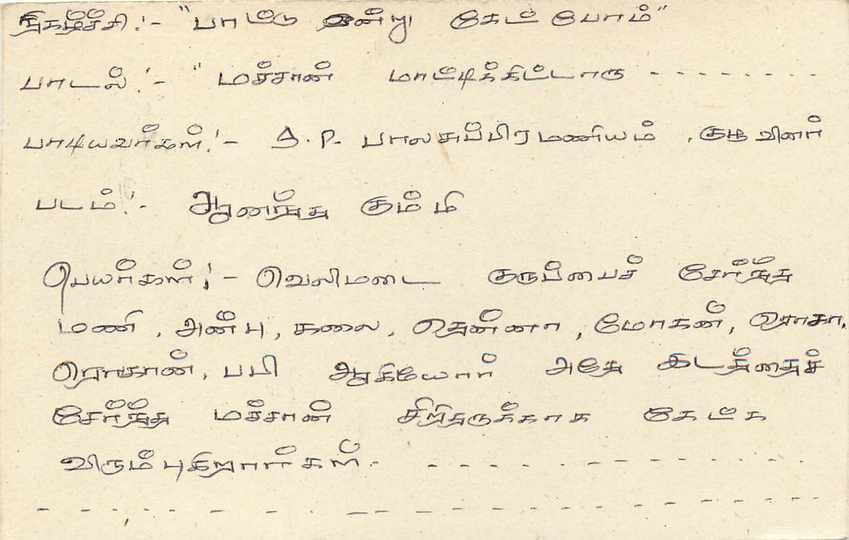 நிகழ்ச்சி:- "பாட்டு ஒன்று கேட்போம்"
பாடல்:- "மச்சான் மாட்டிக்கிட்டாரு - - - - - - - -
பாடியவர்கள்:- S.P. பாலசுப்பிரமணியம், குழுவினர்
படம்:- ஆனந்த கும்மி
பெயர்கள்:- வெலிமடை குருப்பைச் சேர்ந்த
மணி, அன்பு, கலை, தென்னா, மோகன், ராகா,
ரொகான், பபி ஆகியோர் அதே இடத்தைச்
சேர்ந்த மச்சான் சிறிதருக்காக கேட்க
விரும்புகிறார்கள். - - - - - - - - - - - -
- - - - - - - - - - - - - - - - - - - - - -